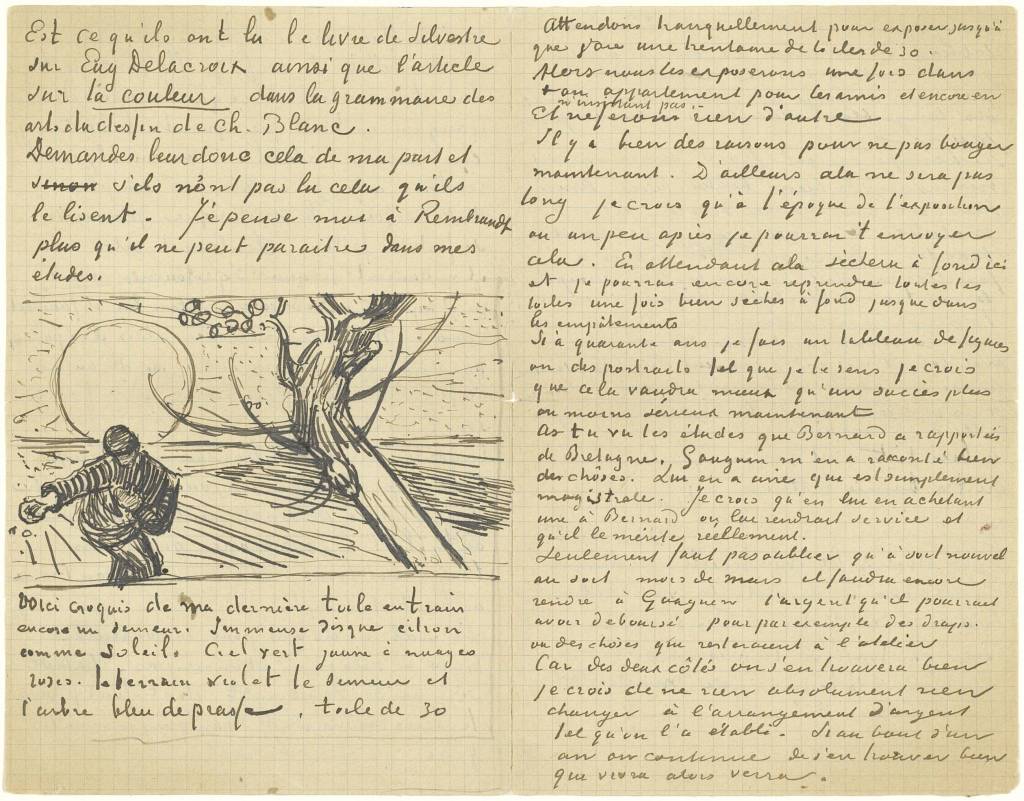 Est ce qu'ils ont lu le livre de Silvestre
sur Eug Delacroix ainsi que l'article
sur la couleur dans la grammaire des
arts du dessin de Ch. Blanc.
Demandes leur donc cela de ma part et
sinon s'ils n'ont pas lu cela qu'ils
le lisent. J'e pense moi à Rembrandt
plus qu'il ne peut paraitre dans mes
études.
Voici croquis de ma dernière toile en train
encore un semeur. Immense disque citron
comme soleil. Ciel vert jaune à nuages
roses. le terrain violet le semeur et
l'arbre bleu de prusse. toile de 30
Attendons tranquillement pour exposer jusqu'à
que j'aie une trentaine de toiles de 30.
Alors nous les exposerons une fois dans
ton appartement pour les amis et encore en
n'insistant pas.
Et ne ferons rien d'autre
Il y a bien des raisons pour ne pas bouger
maintenant. D'ailleurs cela ne sera pas
long je crois qu'à l'époque de l'exposition
ou un peu après je pourrai t'envoyer
cela. En attendant cela sechera à fond ici
et je pourrai encore reprendre toutes les
toiles une fois bien sèches à fond jusque dans
les empâtements
Si à quarante ans je fais un tableau de figures
ou des portraits tel que je le sens je crois
que cela vaudra mieux qu'un succès plus
ou moins sérieux maintenant
As tu vu les études que Bernard a rapportées
de Bretagne. Gauguin m'en a raconté bien
des chôses. Lui en a une que est simplement
magistrale. Je crois qu'en lui en achetant
une à Bernard on lui rendrait service et
qu'il le mérite réellement.
Seulement faut pas oublier qu'à soit nouvel
an soit mois de mars il faudra encore
rendre à Gauguin l'argent qu'il pourrait
avoir deboursé pour par exemple des draps.
ou des chôses qui resteraient à l'atelier
Car des deux côtés on s'en trouvera bien
je crois de ne rien absolument rien
changer à l'arrangement d'argent
tel qu'on l'a établi. Si au bout d'un
an on continue de s'en trouver bien
que vivra alors verra.